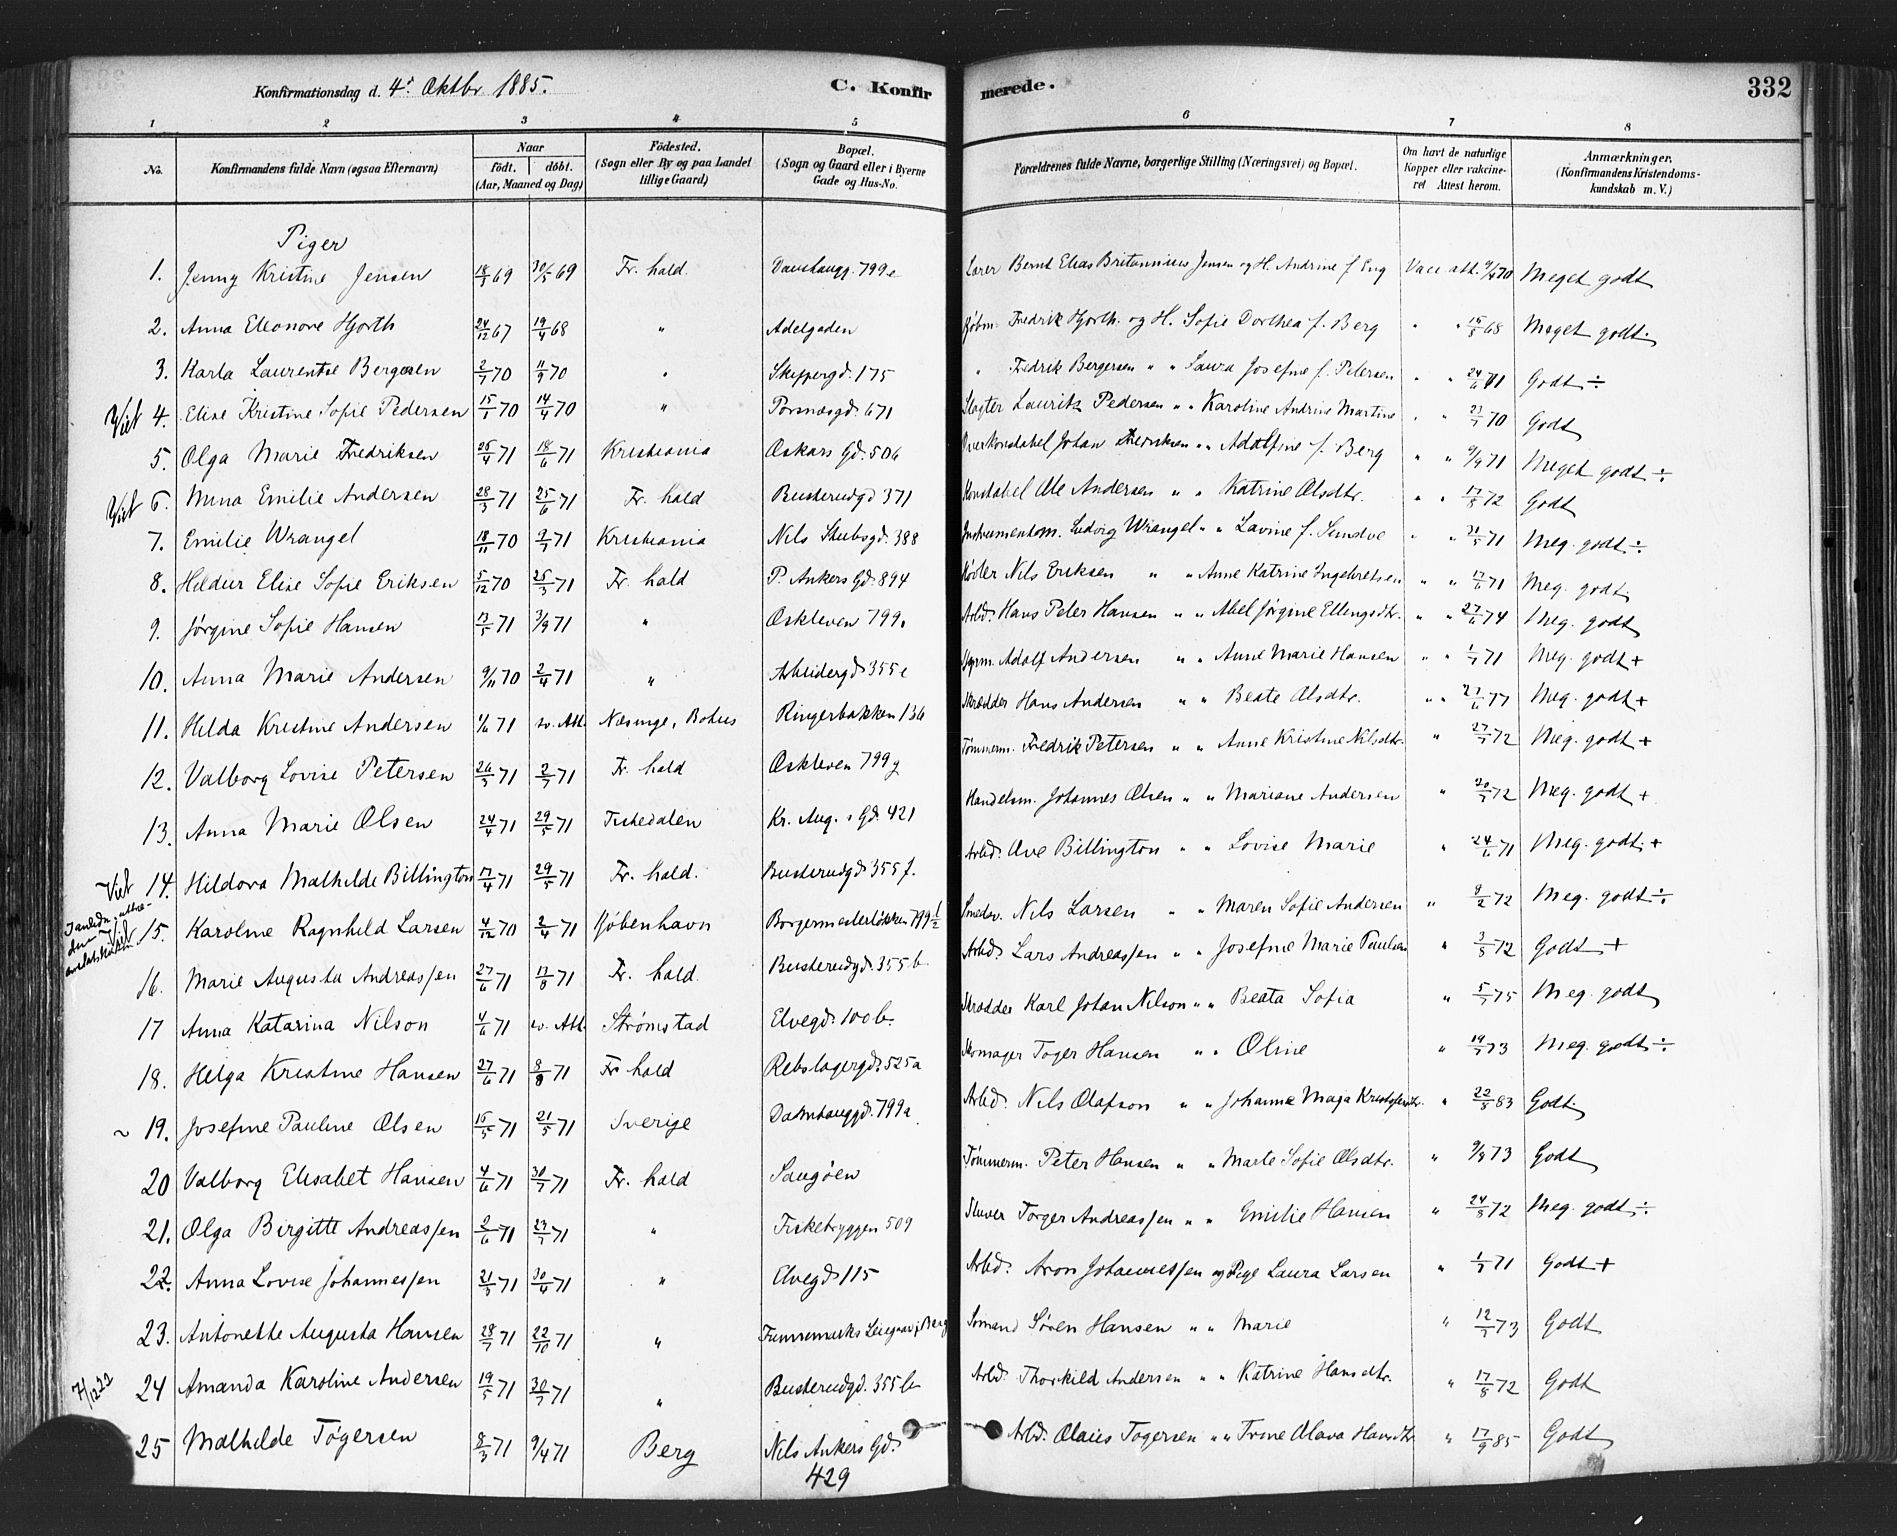 Konfirmationsdag d. 4de Oktbr. 1885.
C. Konfirmerede.
332
1 2 3 4 5 6 7 8
No.
Konfirmandens fulde Navn (ogsaa Efternavn)
Naar
födt. döbt.
(Aar, Maaned og Dag)
Födested.
(Sogn eller By og paa Landet
tillige Gaard)
Bopæl.
(Sogn og Gaard eller i Byerne
Gade og Hus-No.
Forældrenes fulde Navne, borgerlige Stilling (Næringsvei) og Bopæl.
Om havt de naturlige
Kopper eller vakcine-
ret Attest herom.
Anmærkninger.
(Konfirmandens Kristendoms-
kundskab m. V.)
Piger
1. Jenny Kristine Jensen 18/3 69 30/5 69 Fr. hald. Damhaugg. 799e Lærer Bernt Elias Britannius Jensen og H. Andrine f. Eng Vacc. att. 9/4 70 Meget godt
2. Anna Eleonore Hjorth 24/12 67 19/4 68 " Adelgaden Kjøbm. Fredrik Hjorth og H. Sofie Dorthea f. Berg " " 15/8 68 Meget godt
3. Karla Laurentse Bergersen 2/7 70 11/9 70 " Skippergd. 175 " Fredrik Bergersen " " Laura Josefine f. Petersen " " 24/6 71 Godt ÷
Viet 4. Elise Kristine Sofie Pedersen 15/1 70 14/4 70 " Torsnæsgd. 671 Slagter Laurits Pedersen " " Karoline Andrine Martine " " 23/7 70 Godt
5. Olga Marie Fredriksen 25/4 71 18/6 71 Kristiania Oskars Gd. 506 Overkonstabel Johan Fredriksen " " Adolfine f. Berg " " 9/9 71 Meget godt ÷
Viet 6. Mina Emilie Andersen 28/3 71 25/6 71 Fr. hald Busterudgd 371 Konstabel Ole Andersen " " Katrine Olsdtr. " " 17/8 72 Godt
7. Emilie Wrangel 18/11 70 9/7 71 Kristiania Nils Stubsgd. 388 Instrumentm. Ludvig Wrangel " " Lavine f. Sundve " " 21/5 71 Meg. godt ÷
8. Hildur Elise Sofie Eriksen 5/12 70 25/3 71 Fr. hald P. Ankers Gd. 894 Nils Eriksen " " Anne Katrine Ingebretsen " " 17/6 71 Meg. godt
9. Jørgine Sofie Hansen 13/5 71 3/9 71 " Oskleven 799. Arbd. Hans Peter Hansen " " Abel Jørgine Ellingsdtr. " " 27/6 74 Meg. godt
10. Anna Marie Andersen 9/11 70 2/4 71 " Arbeidergd. 355e Adolf Andersen " " Anne Marie Hansen " " 1/7 71 Meg. godt +
11. Hilda Kristine Andersen 1/6 71 sv. Att. Næsinge, Bohus Ringerbakken 136 Skrædder Hans Andersen " " Beate Olsdtr. " " 27/6 77 Meg. godt +
12. Valborg Lovise Petersen 26/3 71 2/7 71 Fr. hald Oskleven 799g Tømmerm. Fredrik Petersen " " Anne Kristine Nilsdtr. " 27/7 72 Meg. godt +
13. Anna Marie Olsen 24/4 71 29/5 71 Tistedalen Kr. Aug. s Gd. 421 Handelsm. Johannes Olsen " " Mariane Andersen " 20/7 72 Meg. godt +
Viet 14. Hildora Mathilde Billington 17/4 71 29/5 71 Fr. hald. Busterudgd 355f. Arbd. Ove Billington " " Lovise Marie " 24/6 71 Meg. godt. +
Viet 15. Karoline Ragnhild Larsen 4/12 70 2/4 71 Kjøbenhavn Borgermesterløkken 799 1/2 Smedsv. Nils Larsen " " Maren Sofie Andersen " 9/2 72 Meg. godt ÷
16. Marie Augusta Andreassen 27/6 71 13/8 71 Fr. hald. Busterudgd. 355b Arbd. Lars Andreassen " " Josefine Marie Paulsen " 3/8 72 Godt +
17 Anna Katarina Nilson 4/6 71 sv. Att. Strømstad Elvegd. 100b. Skrædder Karl Johan Nilson " " Beata Sofia " 5/7 75 Meg. godt
18. Helga Kristine Hansen 27/6 71 8/8 71 Fr hald Rebslagergd. 525a Skomager Toger Hansen " " Oline " 19/7 73 Meg. godt ÷
~ 19. Josefine Pauline Olsen 15/5 71 21/5 71 Sverige Damhauggd. 799a Arbd. Nils Olafson " " Johanna Maja Kristofersdtr. " 22/8 83 Godt
20 Valborg Elisabet Hansen 4/6 71 30/7 71 Fr. hald Saugøen Tømmerm. Peter Hansen " " Marte Sofie Olsdtr. " 9/8 73 Godt
21. Olga Birgitte Andreassen 2/6 71 23/7 71 " Fiskebryggen 509 Stuver Torger Andreassen " " Emilie Hansen " 24/8 72 Meg. godt ÷
22. Anna Lovise Johannessen 21/3 71 30/4 71 " Elvegd 115 Arbd. Aron Johannessen og Pige Laura Larsen " 1/7 71 Godt +
23. Antonette Augusta Hansen 28/7 71 22/10 71 " Berg Sømand Søren Hansen " " Marie " 12/7 73 Godt
7/12 22 24 Amanda Karoline Andersen 19/5 71 30/7 71 " Busterudgd. 355b Arbd. Thorkild Andersen " " Katrine Hansdtr. " 17/8 72 Godt
25 Mathilde Tøgersen 8/3 71 9/4 71 Berg Nils Ankers Gd. 429 Arbd. Olaus Tøgersen " " Trine Olava Hansdtr " 17/9 85 Godt